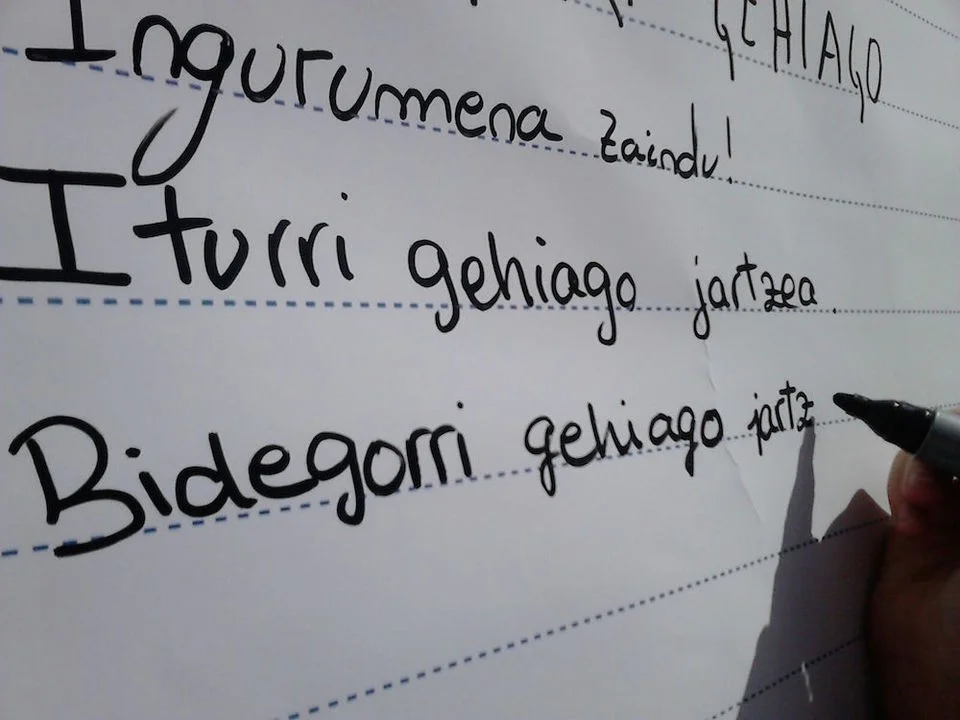 GEHIAGO
Ingurumena zaindu!
Iturri gehiago jartzea.
Bidegorri gehiago jartz